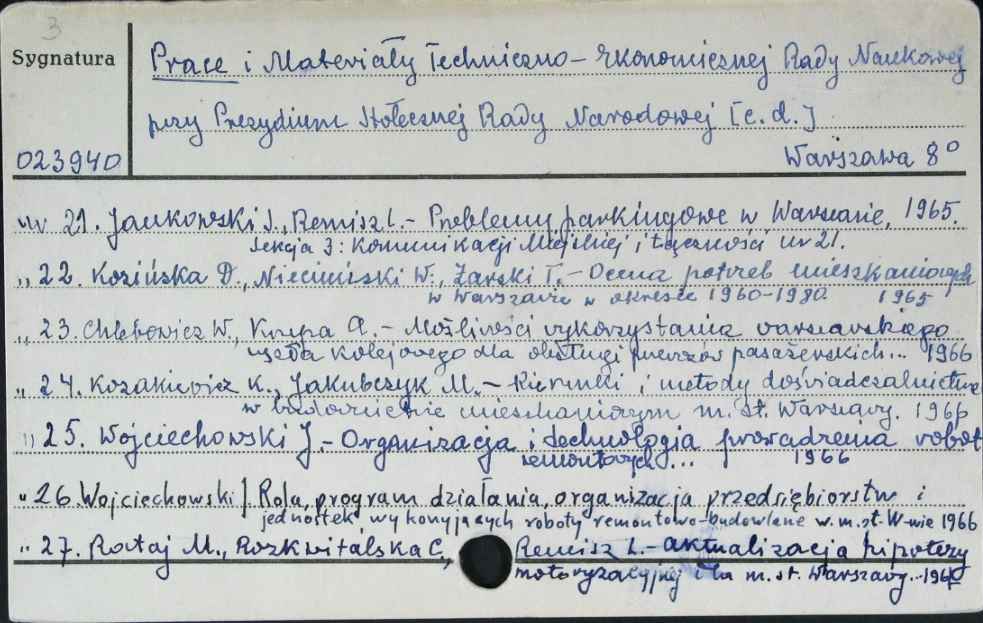 3
Sygnatura
Prace i Materiały Techniczno-Ekonomicznej Rady Naukowej
przy Prezydium Stołecznej Rady Narodowej [c.d.]
023940
Warszawa 8°
nr 21. Jankowski S., Remisz L. - Problemy parkingowe w Warszawie, 1965.
Sekcja 3: Komunikacji Miejskiej i łączności nr 21.
„ 22. Kozińska D., Nieciuński W., Żarski T. - Ocena potrzeb mieszkaniowych
w Warszawie w okresie 1960-1980 1965
„ 23. Chlebowicz W., Krupa A. - Możliwości wykorzystania warszawskiego
węzła kolejowego dla obsługi przewozów pasażerskich... 1966
„ 24. Kozakiewicz K., Jakubczyk M. - Kierunki i metody doświadczalnictwa
w budownictwie mieszkaniowym m. st. Warszawy. 1966
„ 25. Wojciechowski J. - Organizacja i technologia prowadzenia robót
remontowych... 1966
„ 26. Wojciechowski J. Rola, program działania, organizacja przedsiębiorstw i
jednostek wykonyjących roboty remontowo-budowlane w. m. st. W-wie 1966
„ 27. Rataj M., Rozkwitalska C., Remisz L. - aktualizacja hipotezy
motoryzacyjnej dla m. st. Warszawy..